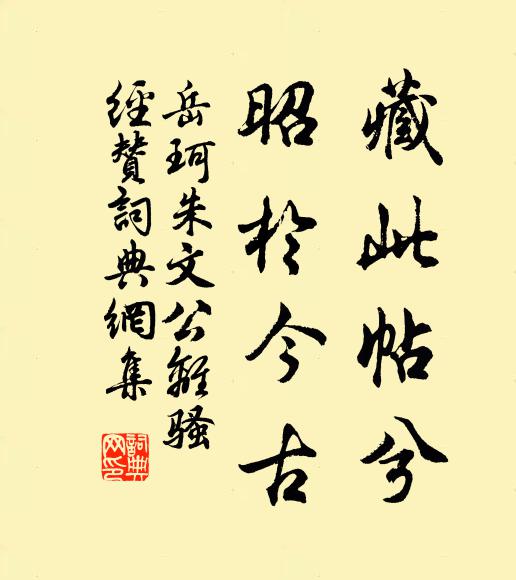 藏此帖兮
昭於今古
岳珂朱文公離騷
經贊詞典網集
詞典網印